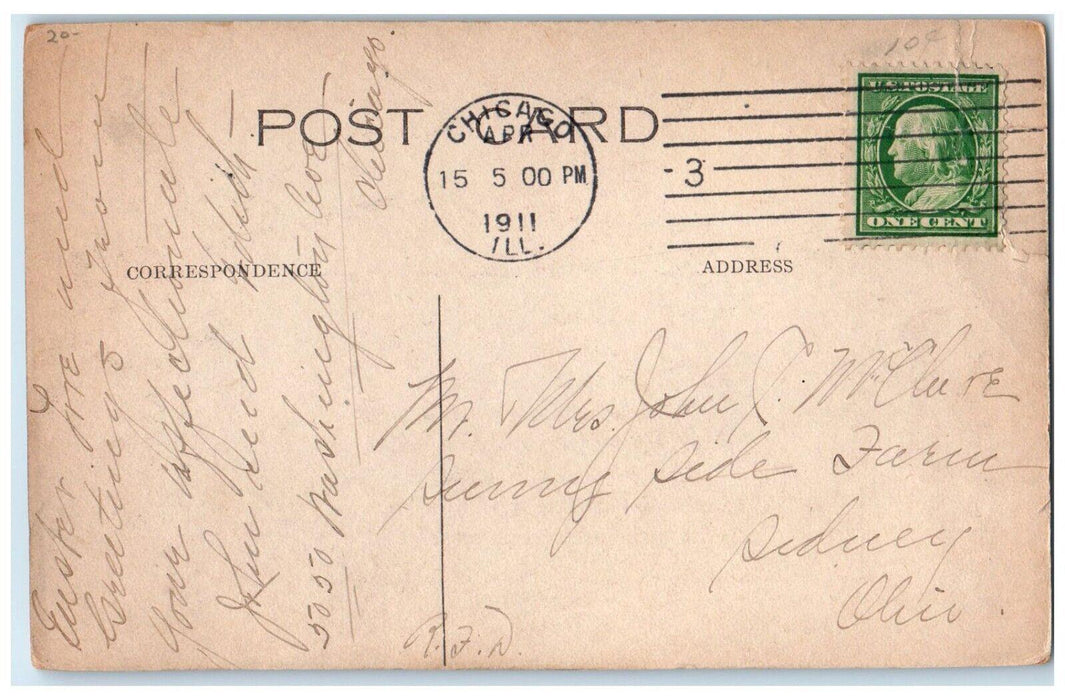 20-
10¢
POST CARD
CHICAGO
APR
15 5 00 PM
1911
ILL.
3
U.S. POSTAGE
ONE CENT
CORRESPONDENCE
ADDRESS
Easter joy and
Greetings from
your affectionate
John and Ruth
5050 Washington Boe
Chicago.
Mr. Mrs. John C. McClure
Sunny Side Farm
Sidney
Ohio.
R.F.D.